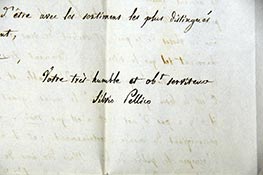 d'être avec les sentimens les plus distingués
Votre très humble et obt. serviteur
Silvio Pellico